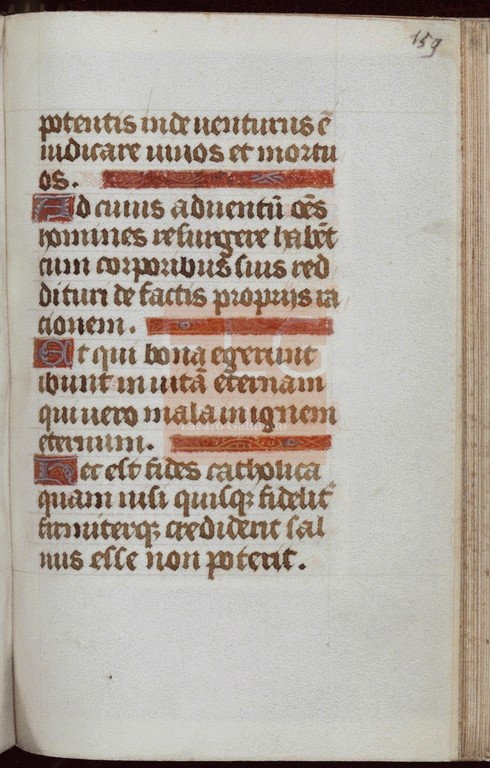 159
potentis inde uenturus ē
iudicare uiuos et mortu
os.
Ad cuius aduentū oēs
homines resurgere habēt
cum corporibus suis red
dituri de factis proprijs ra
tionem.
Et qui bona egerunt
ibunt in uitā eternam
qui uero mala in ignem
eternum.
Hec est fides catholica
quam nisi quisqꝫ fidelit᷑
firmiterqꝫ crediderit sal
uus esse non poterit.